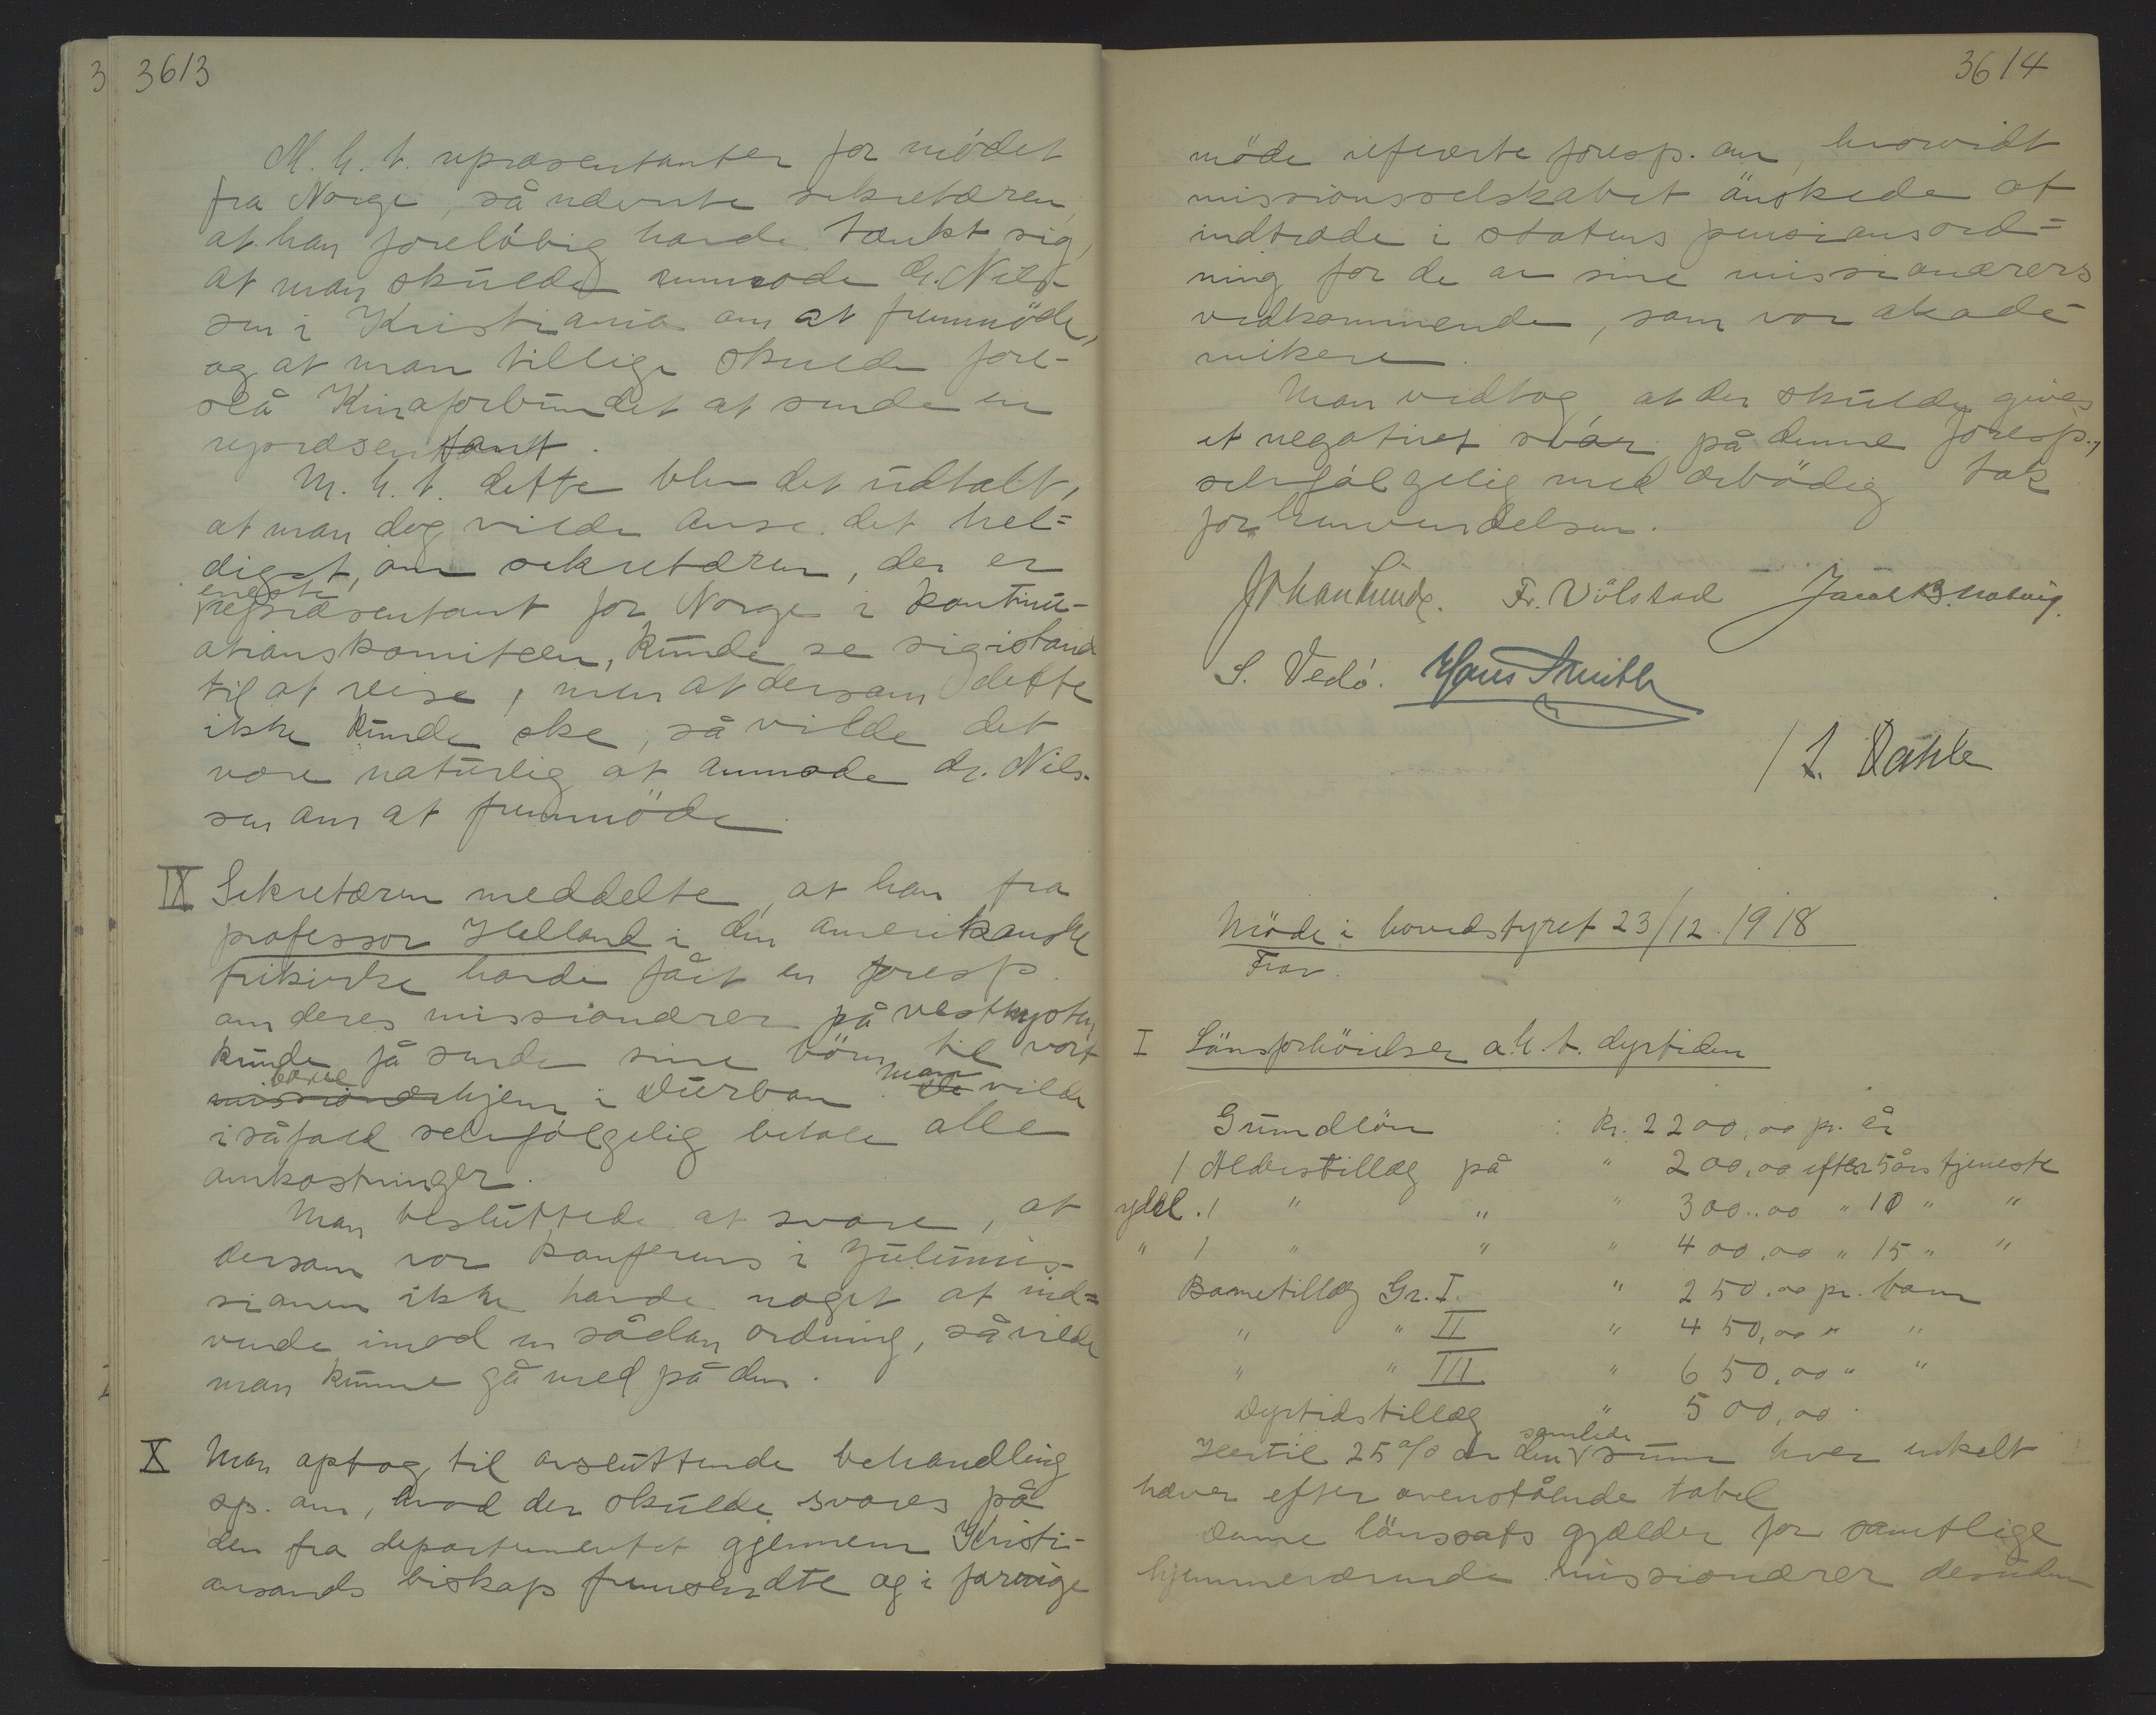 3613
M. h. t. repræsentanter for mödet
fra Norge, så nævnte sekretæren,
at han foreløbig havde tænkt sig,
at man skulde anmode dr. Nils-
sen i Kristiania om at fremmöde,
og at man tillige skulde fore-
slå Kinaforbundet at sende en
repræsentant.
M. h. t. dette blev det udtalt,
at man dog vilde anse det hel=
digst, om sekretæren, der er
eneste
repræsentant for Norge i kontinu-
ationskomiteen, kunde se sig istand
til at reise, men at dersom dette
ikke kunde ske, så vilde det
være naturlig at anmode dr. Nils-
sen om at fremmöde.
IX Sekretæren meddelte, at han fra
professor Helland i den amerikanske
frikirke havde fået en foresp.
om deres missionærer på vestkysten
kunde få sende sine börn til vort
barne man
missionærhjem i Durban. De vilde
isåfald selvfölgelig betale alle
omkostninger.
Man besluttede at svare, at
dersom vor konferens i Zulumis-
sionen ikke havde noget at ind=
vende imod en sådan ordning, så vilde
man kunne gå med på den.
X Man optog til avsluttende behandling
sp. om, hvad der skulde svares på
den fra departementet gjennem Kristi-
ansands biskop fremsendte og i forrige
3614
möde refererte foresp. om, hvorvidt
missionsselskabet önskede at
indtræde i statens pensionsord=
ning for de av sine missionærers
vedkommende, som var akade-
mikere.
Man vedtog, at der skulde gives
et negativt svar på denne foresp.,
selvfölgelig med ærbödig tak
for henvendelsen.
Johan Lunde. Fr. Völstad Jacob B. Natvig.
S. Vedö. Hans Smith
/ L. Dahle
Möde i hovedstyret 23/12. 1918
Frav.
I Lönsforhöielser a. h. t. dyrtiden
Grundlön : Kr. 2200,00 pr. år
1 Alderstillæg på " 200,00 efter 5 års tjeneste
yderl. 1 " " " 300,00 " 10 " "
" 1 " " " 400,00 " 15 " "
Barnetillæg Gr. I " 250,00 pr. barn
" " II " 450,00 " "
" " III " 650,00 " "
Dyrtidstillæg " 500,00
samlede
Hertil 25 % av den sum hver enkelt
hæver efter ovenstående tabel
Denne lönssats gjælder for samtlige
hjemmeværende missionærer desuden